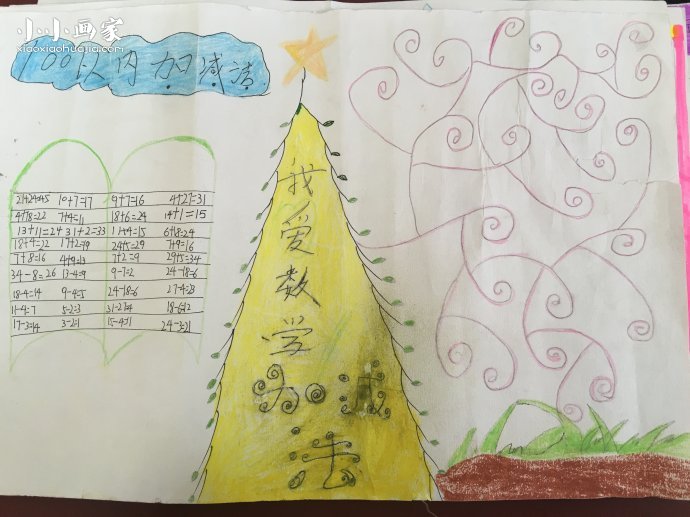 小小画家
xiaoxiaohuajia.com
100以内加减法
我爱数学
加减
法
21+24=45 10+7=17 9+7=16 4+27=31
4+18=22 7+4=11 18+6=24 14+1=15
13+11=24 31+2=33 11+4=15 6+18=24
18+4=22 17+2=19 24+5=29 7+9=16
7+8=16 4+9=13 7+2=9 29+5=34
34-8=26 13-4=9 9-7=2 24-18=6
18-4=14 9-4=5 24-18=6 27-4=23
11-4=7 5-2=3 31-27=4 18-6=12
17-3=14 3-2=1 15-4=11 24-3=21